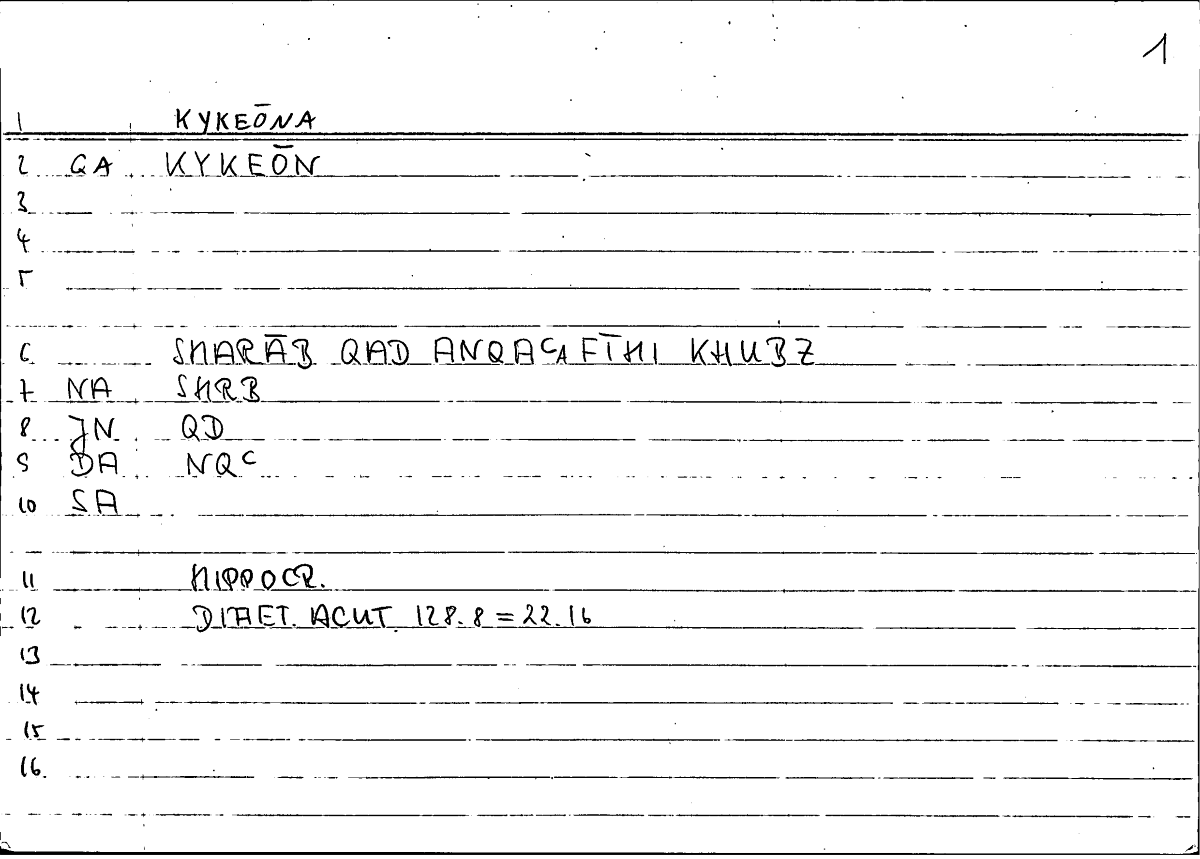 1
1 KYKEŌNA
2 QA KYKEŌN
3
4
5
6 SHARĀB QAD ANQAᶜA FĪHI KHUBZ
7 NA SHRB
8 JN QD
9 DA NQᶜ
10 SA
11 HIPPOCR.
12 DIAET. ACUT. 128.8 = 22.16
13
14
15
16.